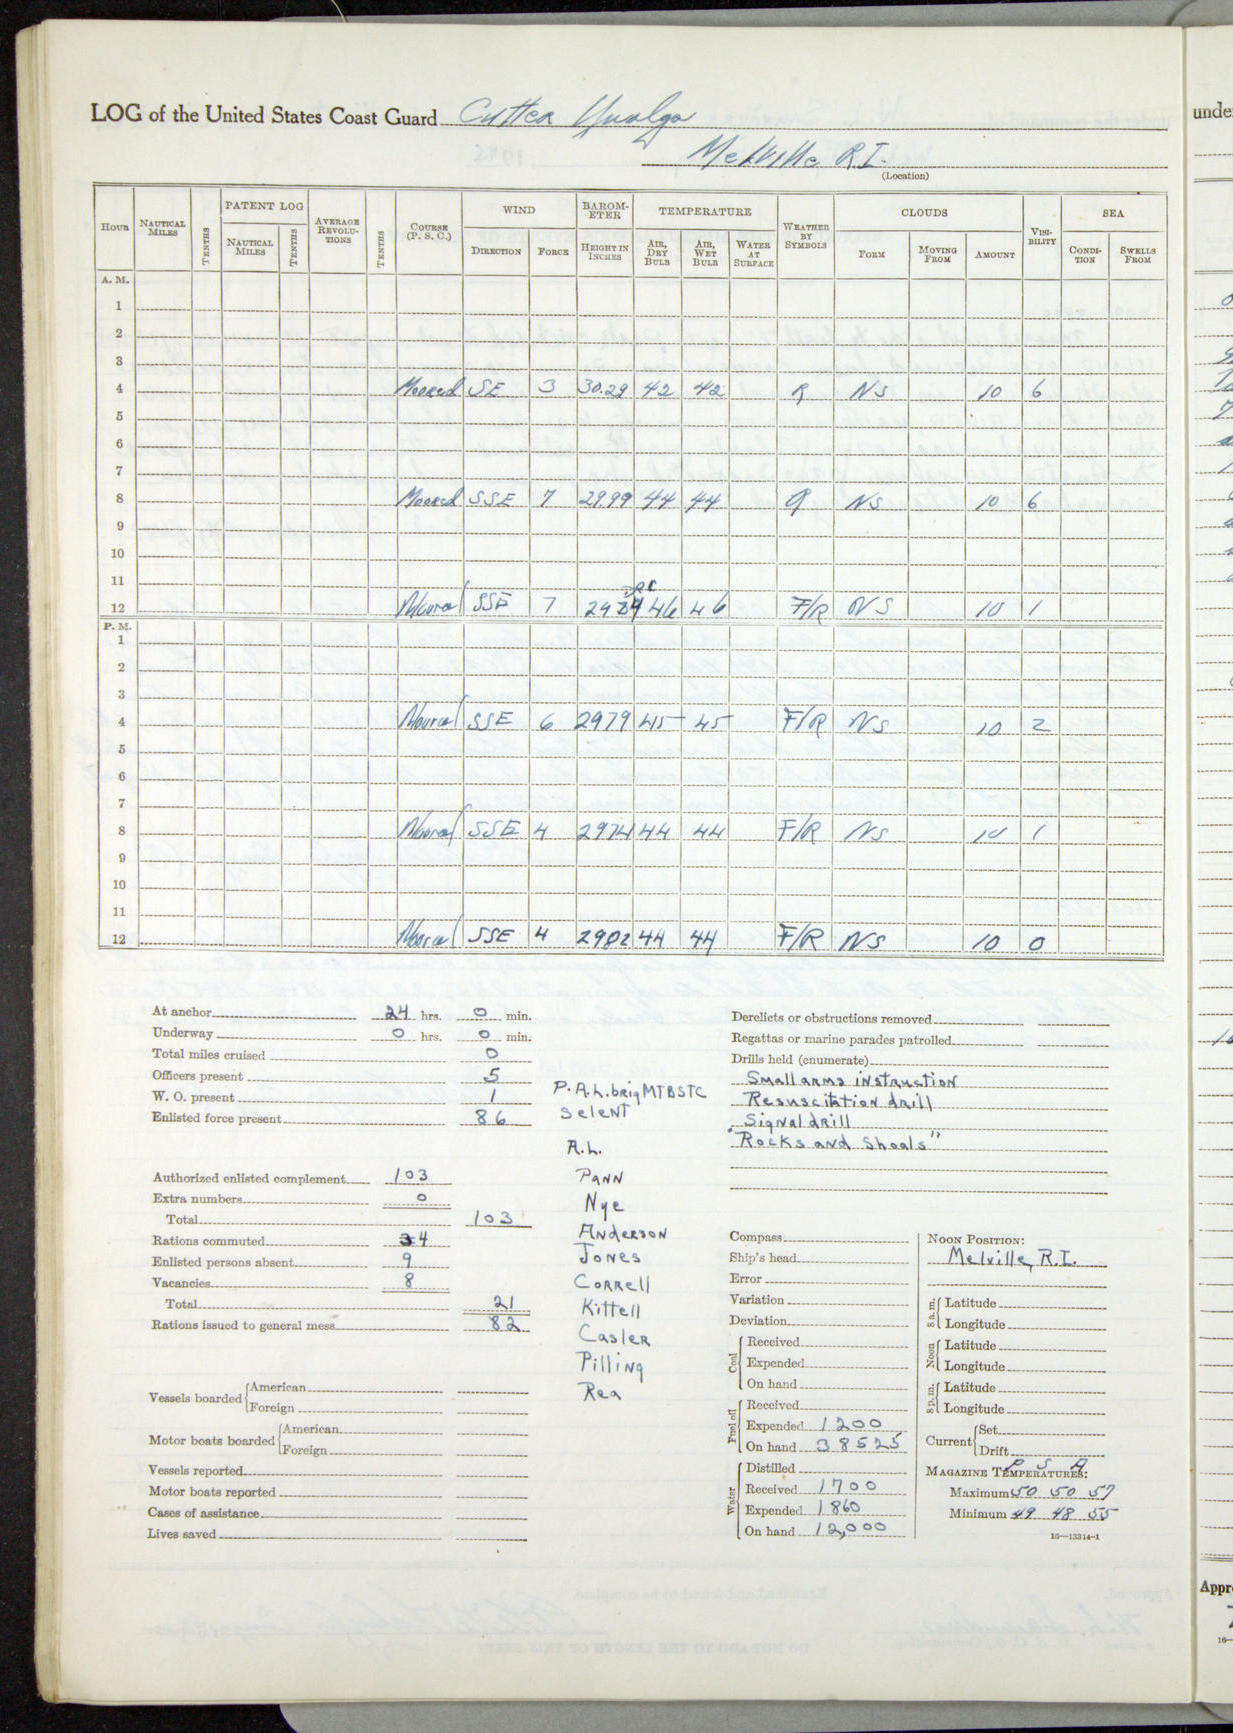 LOG of the United States Coast Guard Cutter Unalga
Melville R.I.
(Location)
HOUR NAUTICAL MILES TENTHS PATENT LOG AVERAGE REVOLU-TIONS TENTHS COURSE (P. S. C.) WIND BAROM-ETER TEMPERATURE WEATHER BY SYMBOLS CLOUDS VISI-BILITY SEA
NAUTICAL MILES TENTHS DIRECTION FORCE HEIGHT IN INCHES AIR, DRY BULB AIR, WET BULB WATER AT SURFACE FORM MOVING FROM AMOUNT CONDI-TION SWELLS FROM
A. M.
1
2
3
4 Moored SE 3 30.29 42 42 R NS 10 6
5
6
7
8 Moored SSE 7 29.99 44 44 R NS 10 6
9
10
11
12 Moored SSE 7 46 46 F/R NS 10 1
P. M.
1
2
3
4 Moored SSE 6 2979 45 45 F/R NS 10 2
5
6
7
8 Moored SSE 4 2974 44 44 F/R NS 10 1
9
10
11
12 Moored SSE 4 2982 44 44 F/R NS 10 0
At anchor 24 hrs. 0 min.
Underway 0 hrs. 0 min.
Total miles cruised 0
Officers present 5
W. O. present 1
Enlisted force present 86
P.A.L. brig MTBSTC
Selent
A.L.
Pann
Nye
Anderson
Jones
Correll
Kittell
Casler
Pilling
Rea
Authorized enlisted complement 103
Extra numbers 0
Total 103
Rations commuted 4
Enlisted persons absent 9
Vacancies 8
Total 21
Rations issued to general mess 82
Vessels boarded American
Foreign
Motor boats boarded American
Foreign
Vessels reported
Motor boats reported
Cases of assistance
Lives saved
Derelicts or obstructions removed
Regattas or marine parades patrolled
Drills held (enumerate)
Small arms instruction
Resuscitation drill
Signal drill
"Rocks and Shoals"
Compass
Ship's head
Error
Variation
Deviation
Coal Received
Expended
On hand
Fuel oil Received
Expended 1200
On hand 38525
Water Distilled
Received 1700
Expended 1860
On hand 12,000
NOON POSITION:
Melville, R.I.
8 a.m. Latitude
Longitude
Noon Latitude
Longitude
8 p.m. Latitude
Longitude
Current Set
Drift
P S A
MAGAZINE TEMPERATURES:
Maximum 50 50 57
Minimum 49 48 55
16—13314-1
unde
Appr
16—